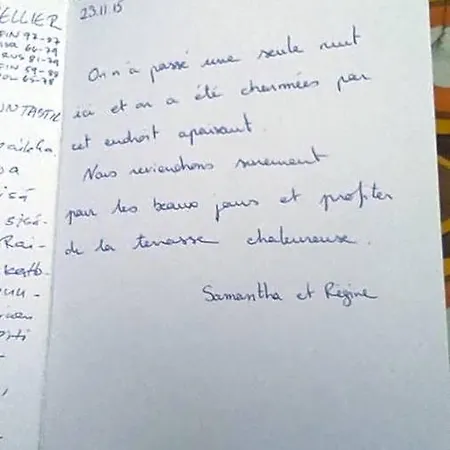 ELLIER
FIN 97-87
59-88
65-78
UNTASTIC
sisä-
Rai-
23.11.15
On n'a passé une seule nuit
ici et on a été charmées par
cet endroit apaisant.
Nous reviendrons surement
pour les beaux jours et profiter
de la terrasse chaleureuse.
Samantha et Régine